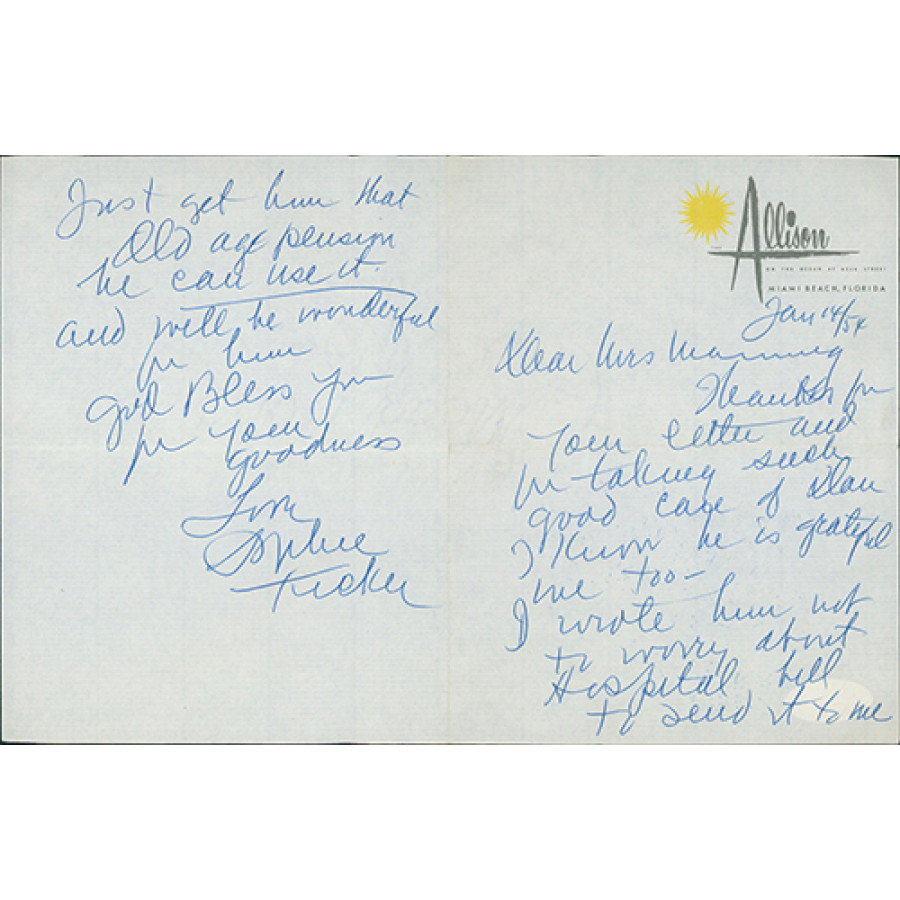 Allison
ON THE OCEAN AT 62nd STREET
MIAMI BEACH, FLORIDA
Jan 14/54
Dear Mrs Manning
Thanks for
your letter and
for taking such
good care of Alan
I know he is grateful
me too -
I wrote him not
to worry about
Hospital bill
to send it to me
Just get him that
Old age pension
he can use it.
and will be wonderful
for him
God Bless you
for your
goodness
Love
Sophie
Tucker